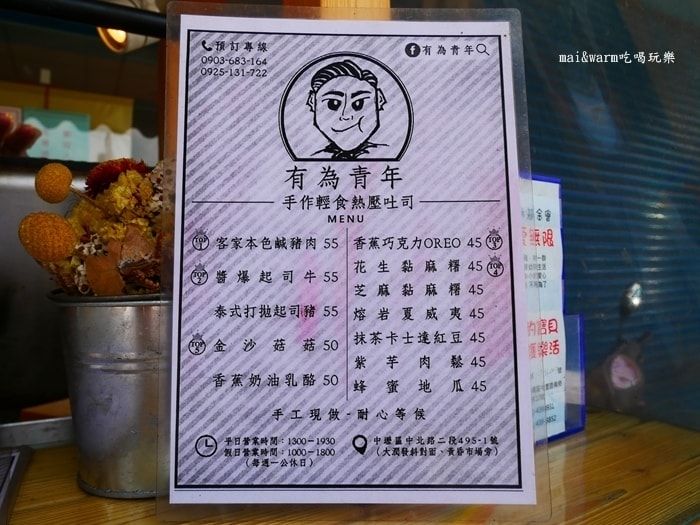 mai&warm吃喝玩樂
預訂專線
0903-683-164
0925-131-722
有為青年
有為青年
手作輕食熱壓吐司
MENU
TOP 1 客家本色鹹豬肉 55
TOP 2 醬爆起司牛 55
泰式打拋起司豬 55
TOP 5 金沙菇菇 50
香蕉奶油乳酪 50
香蕉巧克力OREO 45 TOP 3
花生黏麻糬 45 TOP 4
芝麻黏麻糬 45
熔岩夏威夷 45
抹茶卡士達紅豆 45
紫芋肉鬆 45
蜂蜜地瓜 45
手工現做-耐心等候
平日營業時間：1300－1930
假日營業時間：1000－1800
（每週一公休日）
中壢區中北路二段495-1號
（大潤發斜對面、黃昏市場旁）